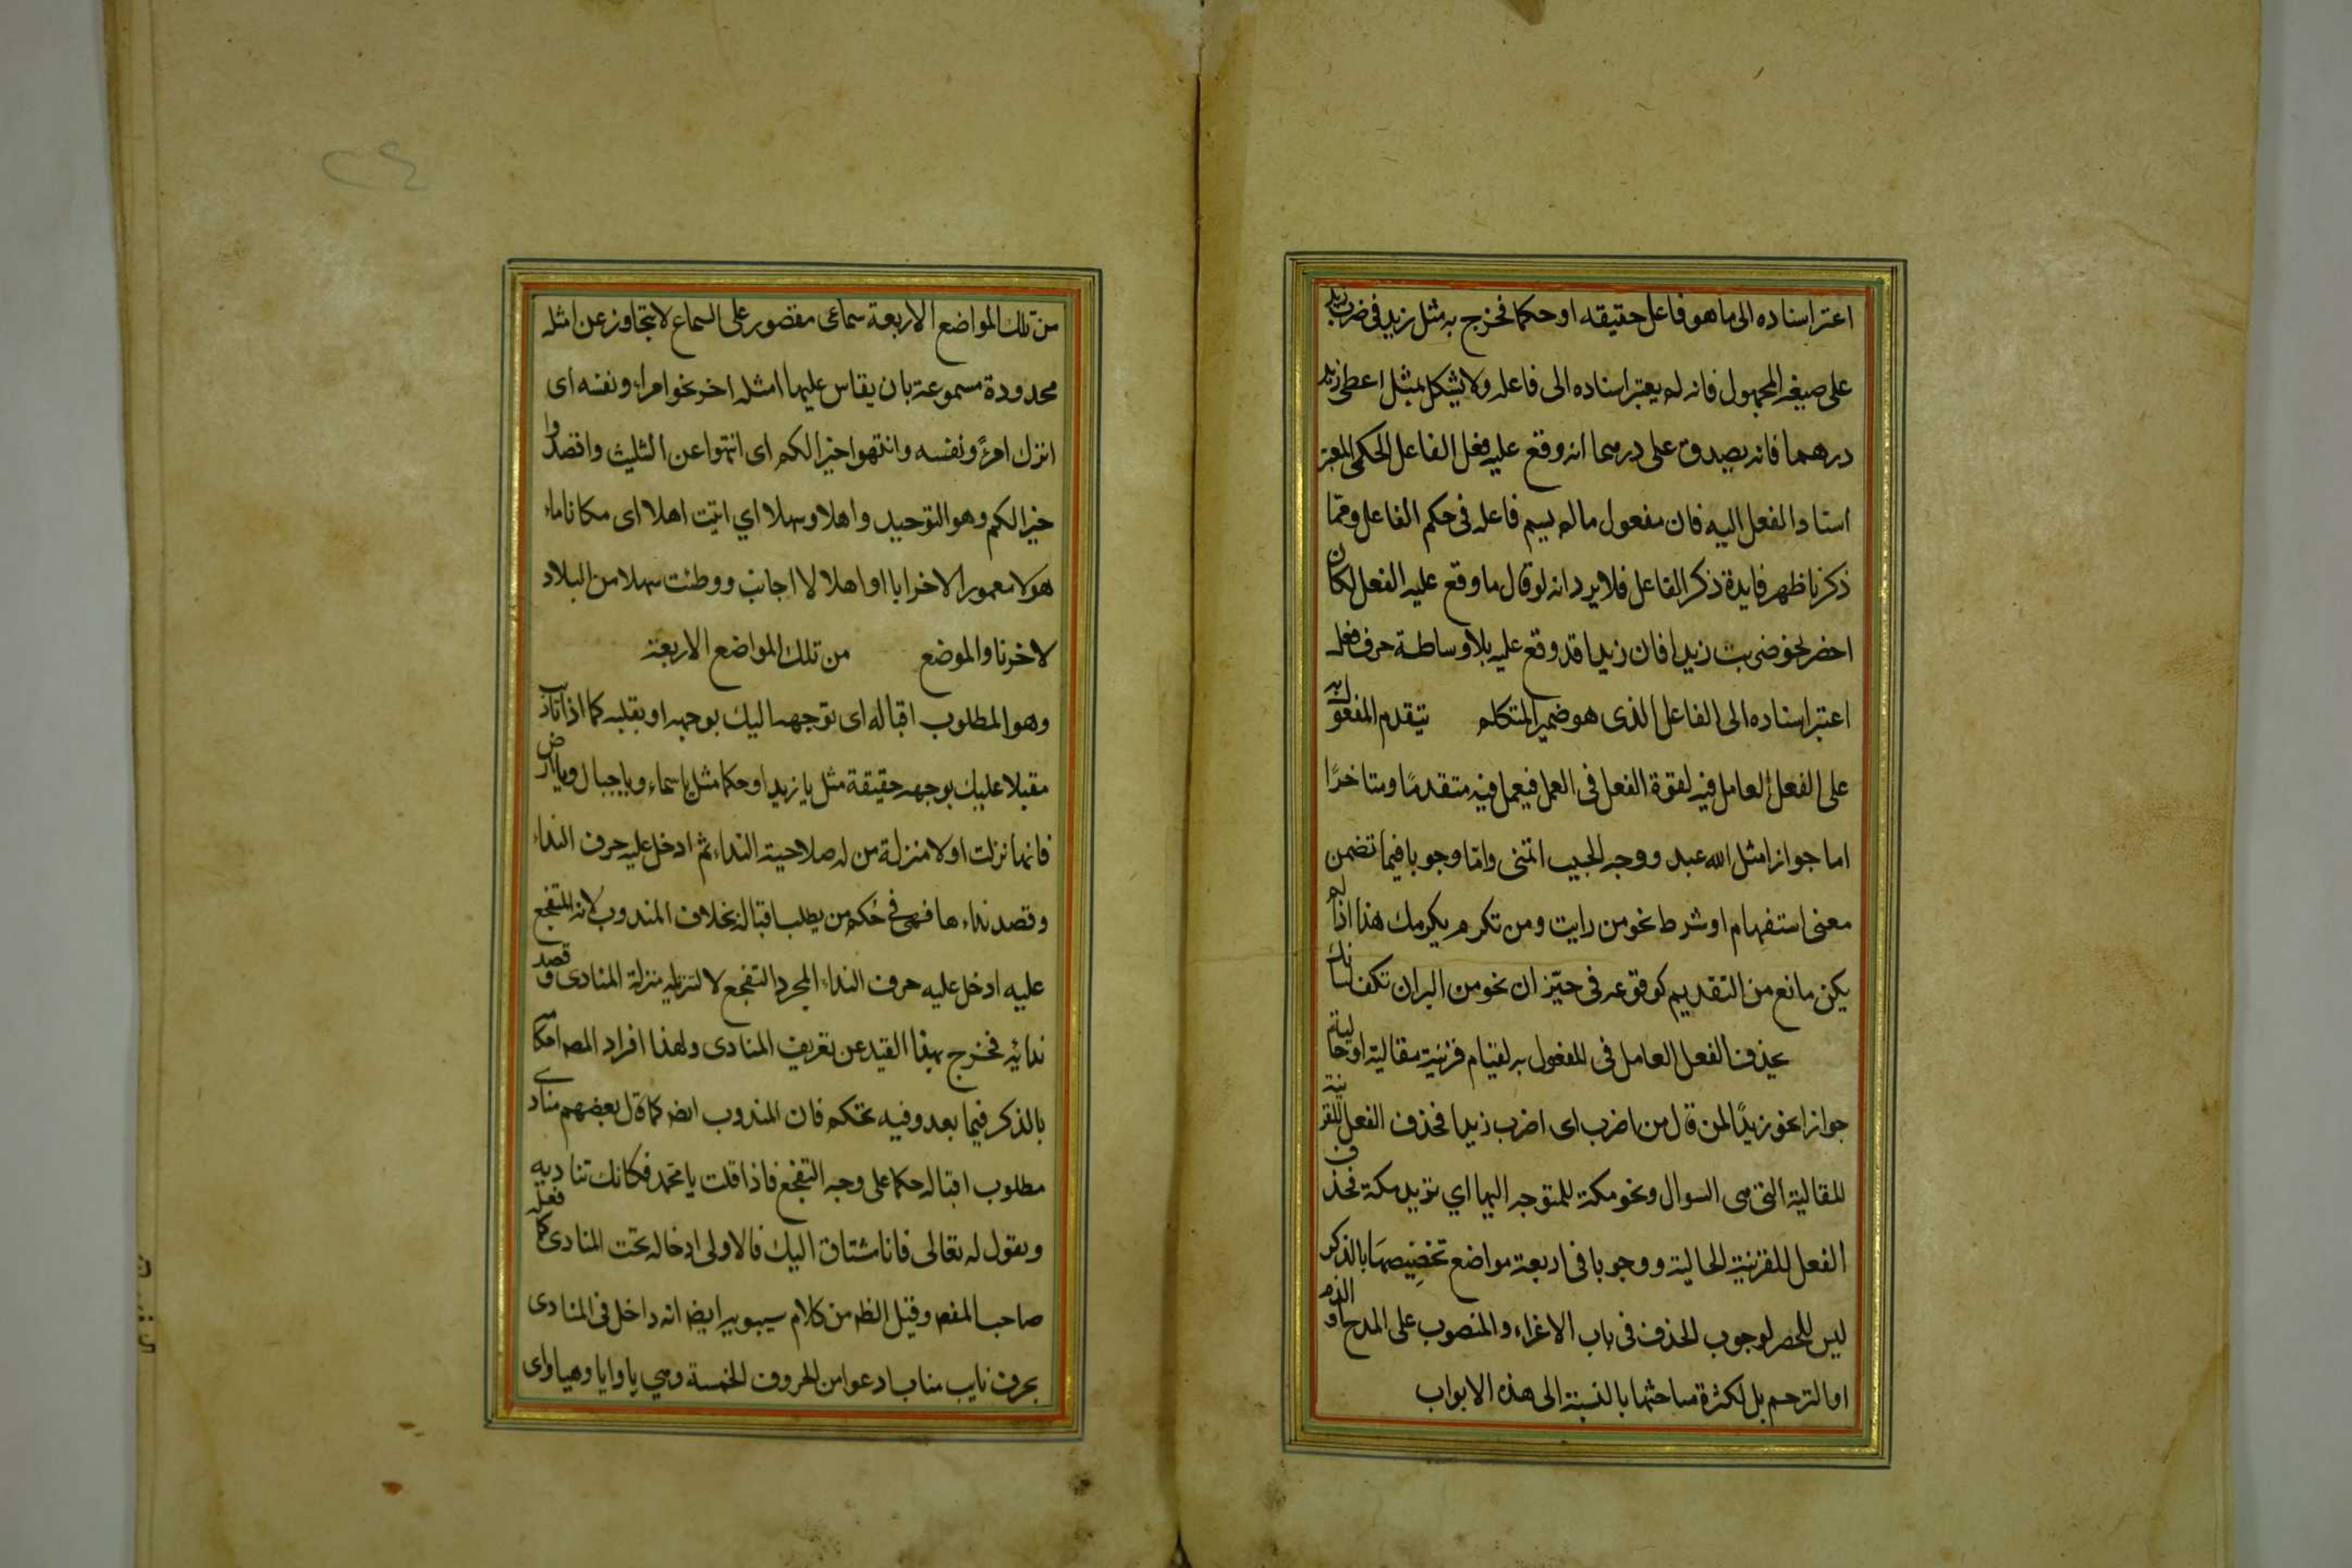 اعتبر اسناده الى ما هو فاعل حقيقه او حكما فخرج به مثل زيد فى ضرب زيد
على صيغه المجهول فانه لم يعتبر اسناده الى فاعله ولا يشكل بمثل اعطى زيد
درهما فانه يصدق على درهما انه وقع عليه فعل الفاعل الحكمى المعتبر
اسناد الفعل اليه فان مفعول ما لم يسم فاعله فى حكم الفاعل ومما
ذكرنا ظهر فايدة ذكر الفاعل فلا يرد انه لو قال ما وقع عليه الفعل لكان
اخضر نحو ضربت زيدا فان زيدا قد وقع عليه بلا وساطة حرف فعل
اعتبر اسناده الى الفاعل الذى هو ضمير المتكلم يتقدم المفعول به
على الفعل العامل فيه لقوة الفعل فى العمل فيعمل فيه متقدمًا ومتاخرًا
اما جوازا مثل الله عبد ووجه الحبيب اتمنى واما وجوبا فيما تضمن
معنى استفهام او شرط نحو من رايت ومن تكرم يكرمك هذا اذا لم
يكن مانع من التقديم كوقوعه فى حيّز ان نحو من البر ان تكف لسانك
يحذف الفعل العامل فى المفعول به لقيام قرينة مقالية او حالية
جوازا نحو زيدًا لمن قال من اضرب اى اضرب زيدا فحذف الفعل للقرينة
المقالية التى هى السوال ونحو مكة للمتوجه اليها اي تريد مكة فحذف
الفعل للقرينية الحالية ووجوبا فى اربعة مواضع تخصيصها بالذكر
ليس للحصر لوجوب الحذف فى باب الاغراء والمنصوب على المدح او الذم
او الترحم بل لكثرة مباحثها بالنسبة الى هذه الابواب
من تلك المواضع الاربعة سماعى مقصور على السماع لا يتجاوز عن امثله
محدودة مسموعة بان يقاس عليها امثله اخر نحو امراء ونفسه اى
اترك امرءً ونفسه وانتهوا خيرا لكم اى انتهوا عن الثليث واقصدوا
خيرا لكم وهو التوحيد واهلا وسهلا اي اتيت اهلا اى مكانا ماء
هولا معمورا لا خرابا او اهلا لا اجانب ووطئت سهلا من البلاد
لا خرنا والموضع من تلك المواضع الاربعة
وهو المطلوب اقباله اى توجهه اليك بوجهه او بقلبه كما اذا ناديت
مقبلا عليك بوجهه حقيقة مثل يا زيد او حكما مثل يا سماء ويا جبال ويا ارض
فانها نزلت اولا منزلة من له صلاحية النداء ثم ادخل عليه حرف النداء
وقصد نداء ها فهى فى حكم من يطلب اقباله بخلاف المندوب لانه المتفجع
عليه ادخل عليه حرف النداء لمجرد التفجع لا لتنزيله منزلة المنادى وقصد
ندائه فخرج بهذا القيد عن تعريف المنادى ولهذا افراد المص احكامه
بالذكر فيما بعد وفيه تحكم فان المندوب ايضا كما قال بعضهم منادى
مطلوب اقباله حكما على وجه التفجع فاذا قلت يا محمد فكانك تناديه
وتقول له تعالى فانا مشتاق اليك فالاولى ادخاله تحت المنادى كما فعله
صاحب المفصل وقيل الظ من كلام سيبويه ايضا انه داخل فى المنادى
بحرف نايب مناب ادعوا من الحروف الخمسة وهي يا وايا وهيا واى